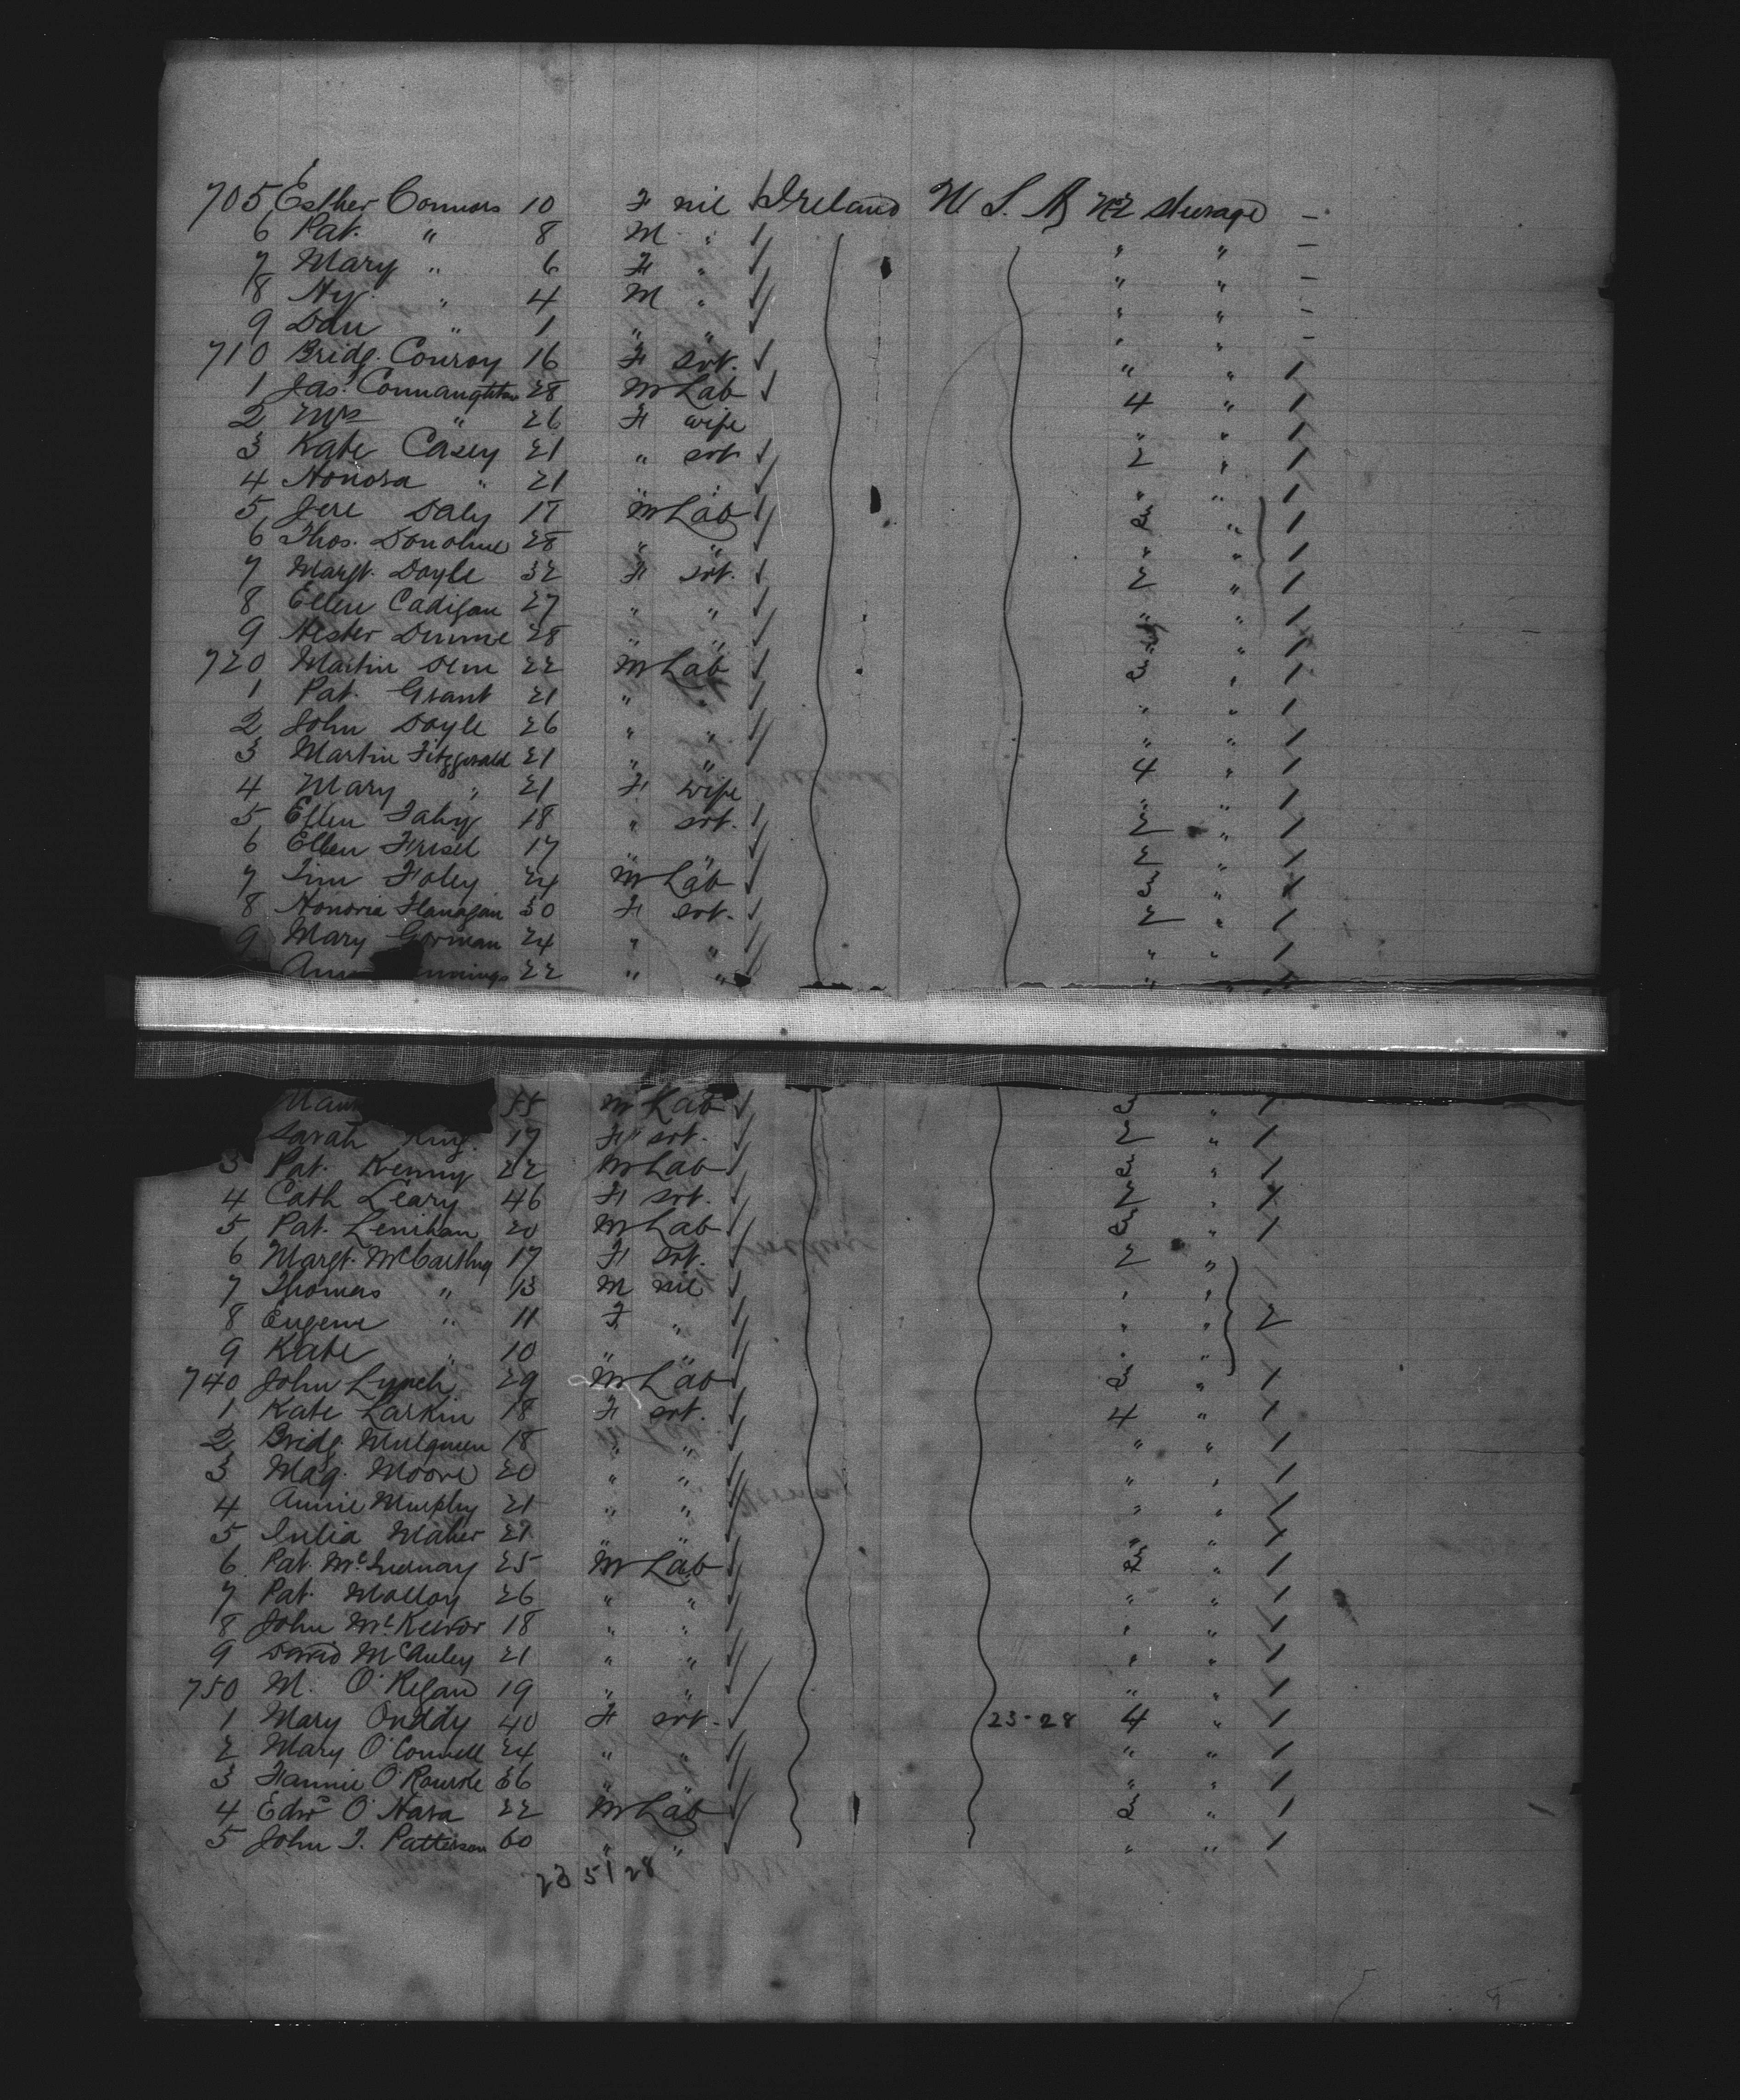 705 Esther Connors 10 F nil Ireland U S A No 2 steerage –
6 Pat. " 8 M " " " –
7 Mary " 6 F " " " –
8 Hy. " 4 M " " " –
9 Dan " 1 " " " " –
710 Bridg. Conroy 16 F svt. " " 1
1 Jas. Connaughton 28 M Lab 4 " 1
2 Mrs " 26 F wife " " 1
3 Kate Casey 21 " svt 2 " 1
4 Honora " 21 " " " " 1
5 Jere Daly 17 M Lab 3 " 1
6 Thos. Donohue 28 " " " " 1
7 Margt. Doyle 32 F svt. 2 " 1
8 Ellen Cadigan 27 " " " " 1
9 Hester Dunne 28 " " " " 1
720 Martin 22 M Lab 3 " 1
1 Pat. Grant 21 " " " " 1
2 John Doyle 26 " " " " 1
3 Martin Fitzgerald 21 " " 4 " 1
4 Mary " 21 F wife " " 1
5 Ellen Fahy 18 " svt. 2 " 1
6 Ellen 17 " " 2 " 1
7 Tim Foley 24 M Lab 3 " 1
8 Honoria Flanagan 30 F svt. 2 " 1
9 Mary Gorman 24 " " " " 1
22 " " " " 1
M Lab 3 " 1
Sarah King 17 F svt. 2 " 1
3 Pat. Kenny 22 M Lab 3 " 1
4 Cath Leary 46 F svt. 2 " 1
5 Pat. Lenihan 20 M Lab 3 " 1
6 Margt. McCarthy 17 F svt. 2 "
7 Thomas " 13 M nil " "
8 Eugene " 11 F " " " 2
9 Kate " 10 " " " "
740 John Lynch 29 M Lab 3 " 1
1 Kate Larkin 18 F svt. 4 " 1
2 Bridg. Mulqueen 18 " " " " 1
3 Mag. Moore 20 " " " " 1
4 Annie Murphy 21 " " " " 1
5 Julia Maher 21 " " " " 1
6 Pat. 25 M Lab 3 " 1
7 Pat. Malloy 26 " " " " 1
8 John 18 " " " " 1
9 David McAuley 21 " " " " 1
750 M. O'Regan 19 " " " " 1
1 Mary Onddy 40 F svt. 23-28 4 " 1
2 Mary O'Connell 24 " " " " 1
3 Fannie O'Rourke 36 " " " " 1
4 Edwd O'Hara 22 M Lab 3 " 1
5 John J. Patterson 60 " " " " 1
23 51 28